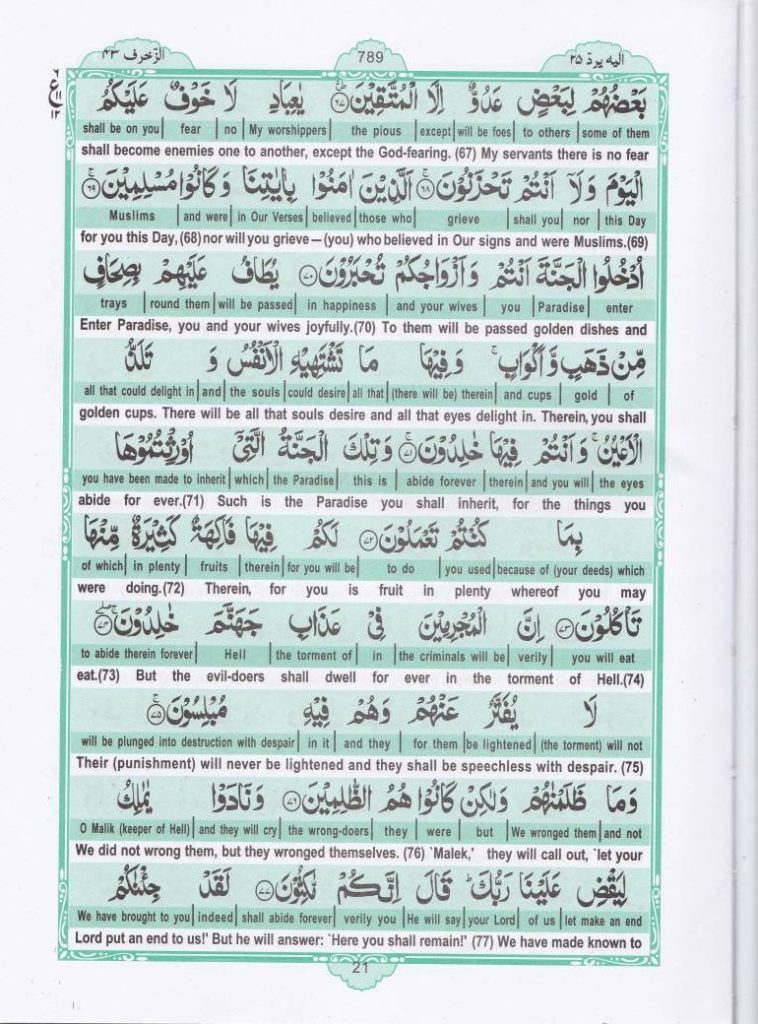 الزخرف ٤٣
789
اليه يردّ ٢٥
ع
١١
١٢
بَعْضُهُمْ لِبَعْضٍ عَدُوٌّ اِلَّا الْمُتَّقِيْنَ ۟ؕ۶۷ يٰعِبَادِ لَا خَوْفٌ عَلَيْكُمُ
shall be on you | fear | no | My worshippers | the pious | except | will be foes | to others | some of them
shall become enemies one to another, except the God-fearing. (67) My servants there is no fear
الْيَوْمَ وَلَاۤ اَنْتُمْ تَحْزَنُوْنَ ۚ۶۸ اَلَّذِيْنَ اٰمَنُوْا بِاٰيٰتِنَا وَكَانُوْا مُسْلِمِيْنَ ۚ۶۹
Muslims | and were | in Our Verses | believed | those who | grieve | shall you | nor | this Day
for you this Day, (68) nor will you grieve — (you) who believed in Our signs and were Muslims.(69)
اُدْخُلُوا الْجَنَّةَ اَنْتُمْ وَاَزْوَاجُكُمْ تُحْبَرُوْنَ ۷۰ يُطَافُ عَلَيْهِمْ بِصِحَافٍ
trays | round them | will be passed | in happiness | and your wives | you | Paradise | enter
Enter Paradise, you and your wives joyfully.(70) To them will be passed golden dishes and
مِّنْ ذَهَبٍ وَّاَكْوَابٍ ۚ وَفِيْهَا مَا تَشْتَهِيْهِ الْاَنْفُسُ وَ تَلَذُّ
all that could delight in | and | the souls | could desire | all that | (there will be) therein | and cups | gold | of
golden cups. There will be all that souls desire and all that eyes delight in. Therein, you shall
الْاَعْيُنُ ۚ وَاَنْتُمْ فِيْهَا خٰلِدُوْنَ ۚ۷۱ وَتِلْكَ الْجَنَّةُ الَّتِيْۤ اُوْرِثْتُمُوْهَا
you have been made to inherit | which | the Paradise | this is | abide forever | therein | and you will | the eyes
abide for ever.(71) Such is the Paradise you shall inherit, for the things you
بِمَا كُنْتُمْ تَعْمَلُوْنَ ۷۲ لَكُمْ فِيْهَا فَاكِهَةٌ كَثِيْرَةٌ مِّنْهَا
of which | in plenty | fruits | therein | for you will be | to do | you used | because of (your deeds) which
were doing.(72) Therein, for you is fruit in plenty whereof you may
تَاْكُلُوْنَ ۷۳ اِنَّ الْمُجْرِمِيْنَ فِيْ عَذَابِ جَهَنَّمَ خٰلِدُوْنَ ۚۖ۷۴
to abide therein forever | Hell | the torment of | in | the criminals will be | verily | you will eat
eat.(73) But the evil-doers shall dwell for ever in the torment of Hell.(74)
لَا يُفَتَّرُ عَنْهُمْ وَهُمْ فِيْهِ مُبْلِسُوْنَ ۚ۷۵
will be plunged into destruction with despair | in it | and they | for them | be lightened | (the torment) will not
Their (punishment) will never be lightened and they shall be speechless with despair. (75)
وَمَا ظَلَمْنٰهُمْ وَلٰكِنْ كَانُوْا هُمُ الظّٰلِمِيْنَ ۷۶ وَنَادَوْا يٰمٰلِكُ
O Malik (keeper of Hell) | and they will cry | the wrong-doers | they | were | but | We wronged them | and not
We did not wrong them, but they wronged themselves. (76) `Malek,' they will call out, `let your
لِيَقْضِ عَلَيْنَا رَبُّكَ ؕ قَالَ اِنَّكُمْ مّٰكِثُوْنَ ۷۷ لَقَدْ جِئْنٰكُمْ
We have brought to you | indeed | shall abide forever | verily you | He will say | your Lord | of us | let make an end
Lord put an end to us!' But he will answer: `Here you shall remain!' (77) We have made known to
21